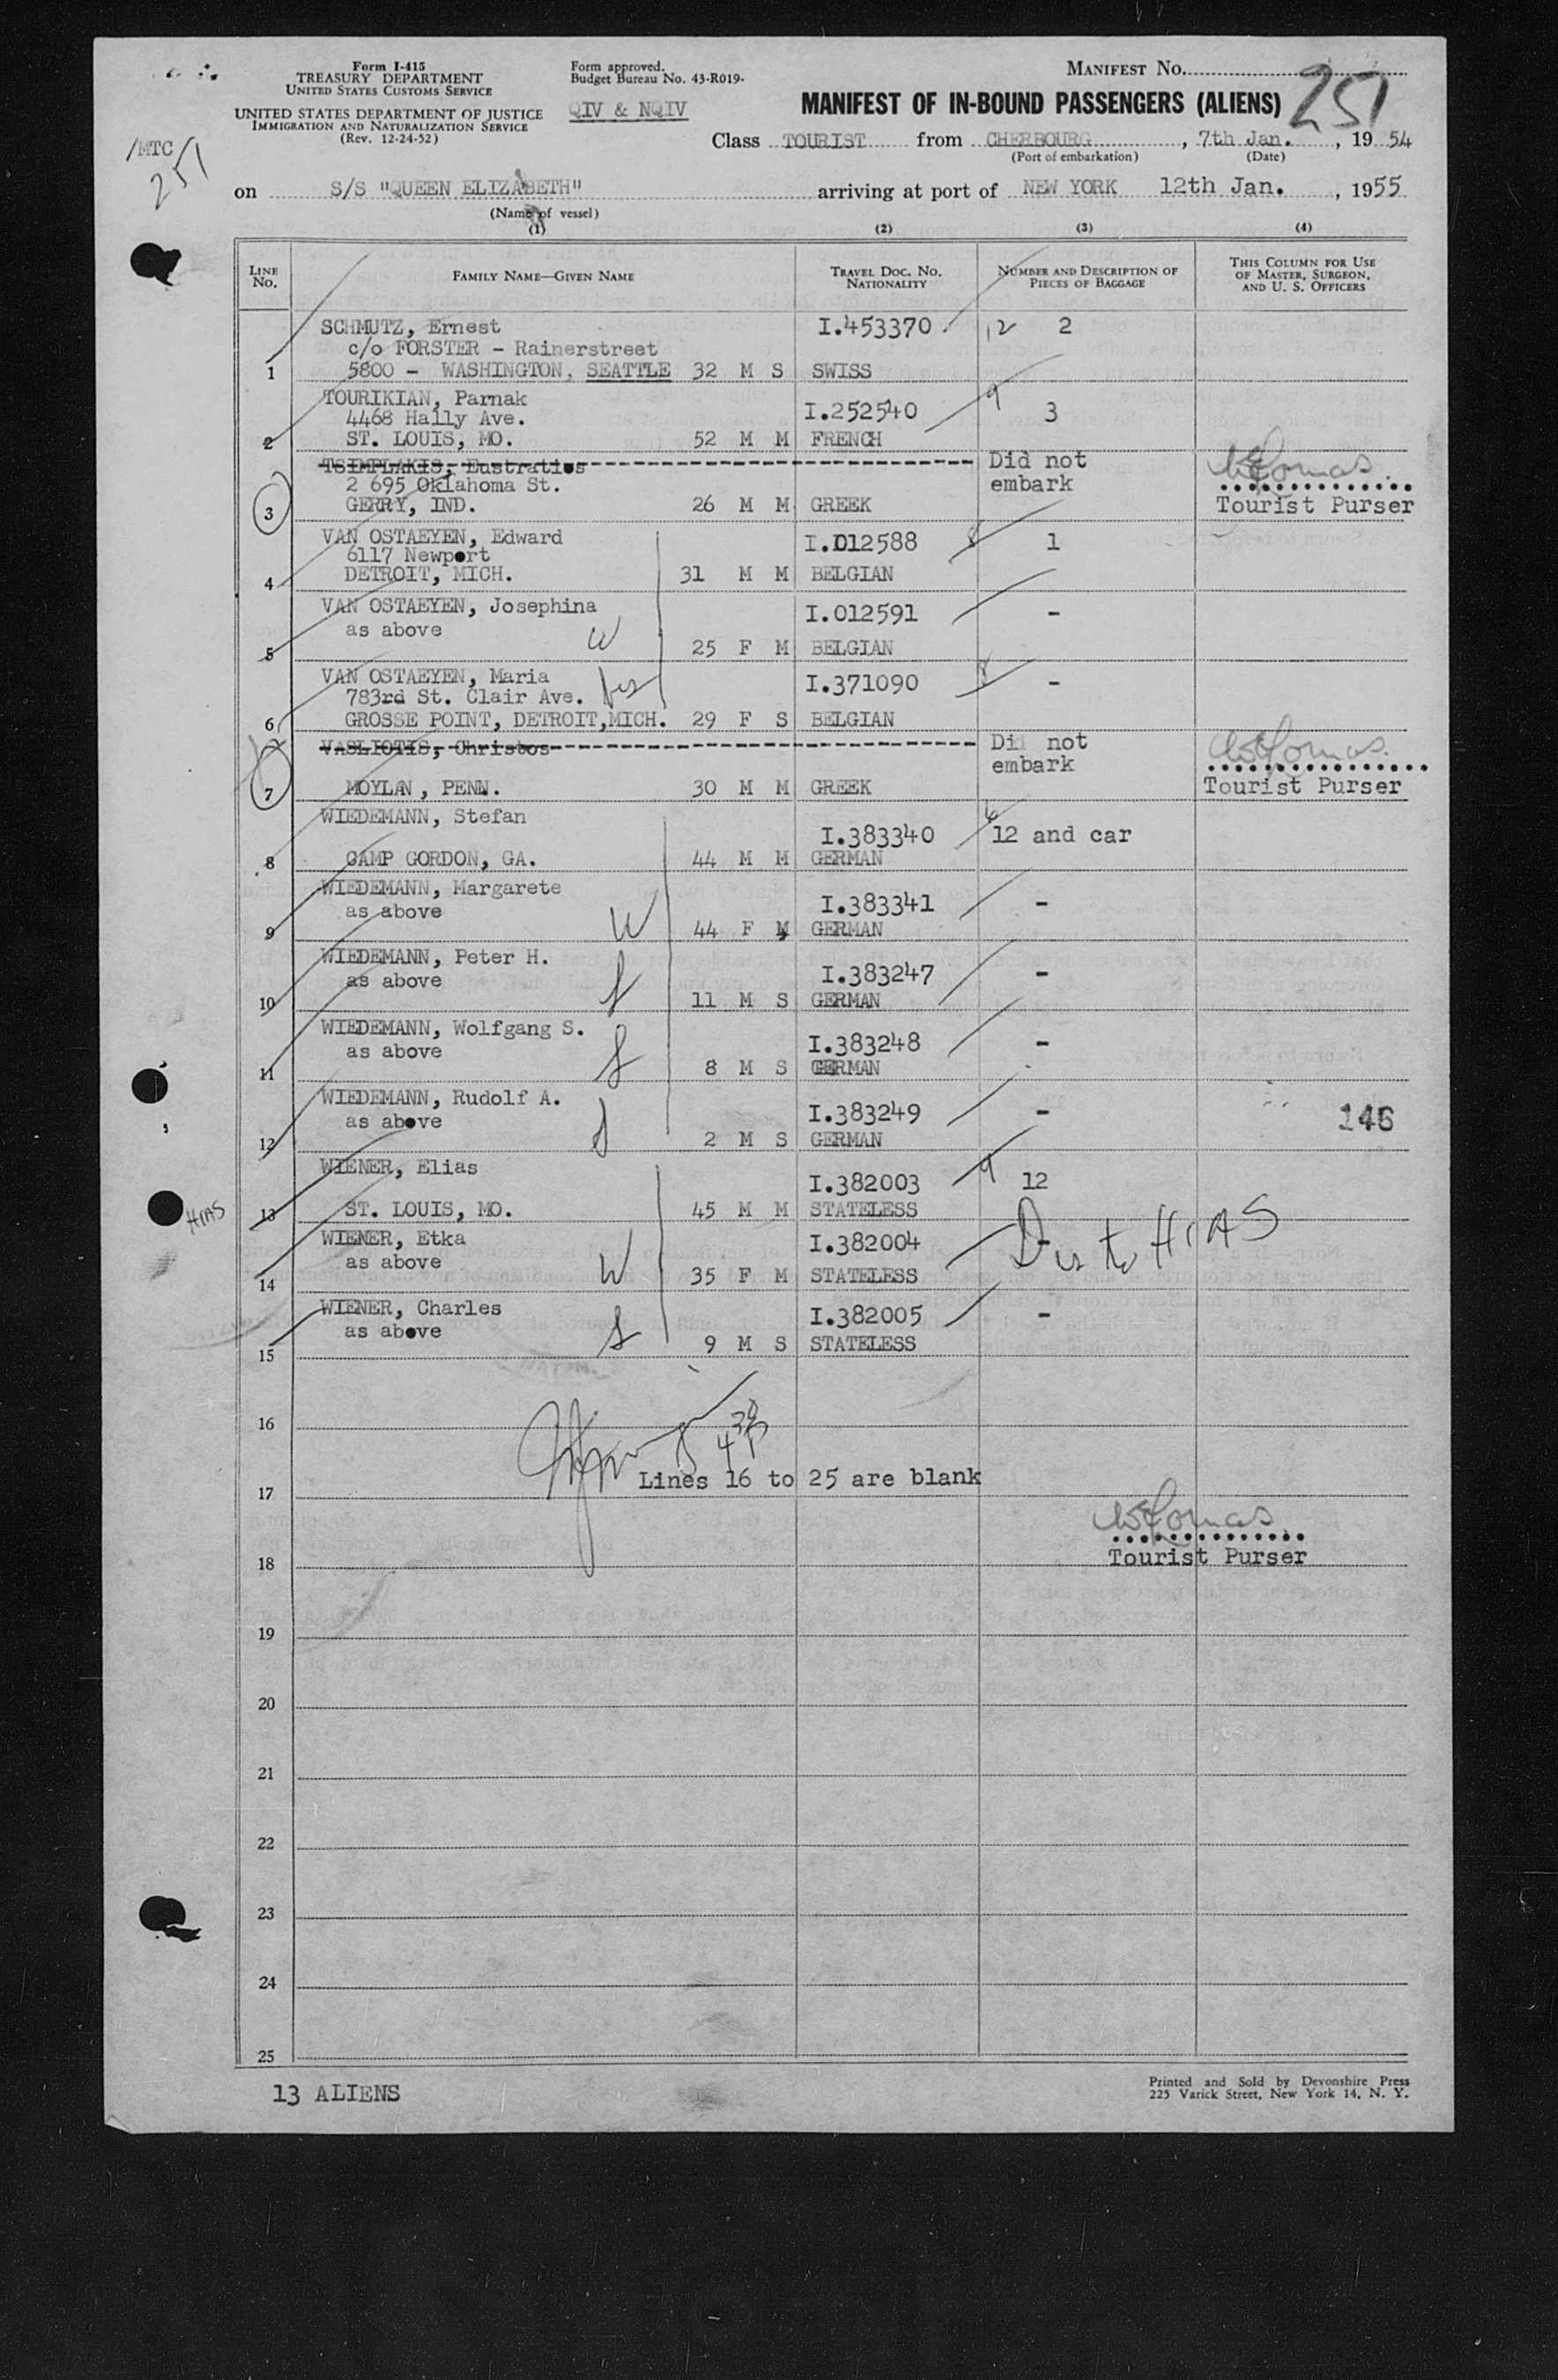 Form I-415
TREASURY DEPARTMENT
UNITED STATES CUSTOMS SERVICE
UNITED STATES DEPARTMENT OF JUSTICE
IMMIGRATION AND NATURALIZATION SERVICE
(Rev. 12-24-52)
Form approved.
Budget Bureau No. 43-R019-
QIV & NQIV
MANIFEST No. 251
MANIFEST OF IN-BOUND PASSENGERS (ALIENS)
/MTC
251
Class TOURIST from CHERBOURG, 7th Jan., 1954
(Port of embarkation) (Date)
on S/S "QUEEN ELIZABETH" arriving at port of NEW YORK 12th Jan., 1955
(Name of vessel)
(1) (2) (3) (4)
LINE No. FAMILY NAME—GIVEN NAME TRAVEL DOC. NO. NATIONALITY NUMBER AND DESCRIPTION OF PIECES OF BAGGAGE THIS COLUMN FOR USE OF MASTER, SURGEON, AND U. S. OFFICERS
SCHMUTZ, Ernest I.453370 12 2
c/o FORSTER - Rainerstreet
1 5800 - WASHINGTON, SEATTLE 32 M S SWISS
TOURIKIAN, Parnak I.252540 9 3
4468 Hally Ave.
2 ST. LOUIS, MO. 52 M M FRENCH
TSIMPLAKIS, Eustratios Did not
2 695 Oklahoma St. embark
3 GERRY, IND. 26 M M GREEK Tourist Purser
VAN OSTAEYEN, Edward I.D12588 8 1
6117 Newport
4 DETROIT, MICH. 31 M M BELGIAN
VAN OSTAEYEN, Josephina I.012591 -
as above W
5 25 F M BELGIAN
VAN OSTAEYEN, Maria I.371090 8 -
783rd St. Clair Ave.
6 GROSSE POINT, DETROIT,MICH. 29 F S BELGIAN
VASLIOTIS, Christos Did not
embark
7 MOYLAN, PENN. 30 M M GREEK Tourist Purser
WIEDEMANN, Stefan I.383340 6 12 and car
8 CAMP GORDON, GA. 44 M M GERMAN
WIEDEMANN, Margarete I.383341 -
as above W
9 44 F M GERMAN
WIEDEMANN, Peter H. I.383247 -
as above S
10 11 M S GERMAN
WIEDEMANN, Wolfgang S. I.383248 -
as above S
11 8 M S GERMAN
WIEDEMANN, Rudolf A. I.383249 -
as above S 146
12 2 M S GERMAN
WIENER, Elias I.382003 9 12
HIAS
13 ST. LOUIS, MO. 45 M M STATELESS
WIENER, Etka I.382004 - Dis to HIAS
as above W
14 35 F M STATELESS
WIENER, Charles I.382005 -
as above S
15 9 M S STATELESS
16
Lines 16 to 25 are blank
17
18 Tourist Purser
19
20
21
22
23
24
25
13 ALIENS
Printed and Sold by Devonshire Press
225 Varick Street, New York 14, N. Y.